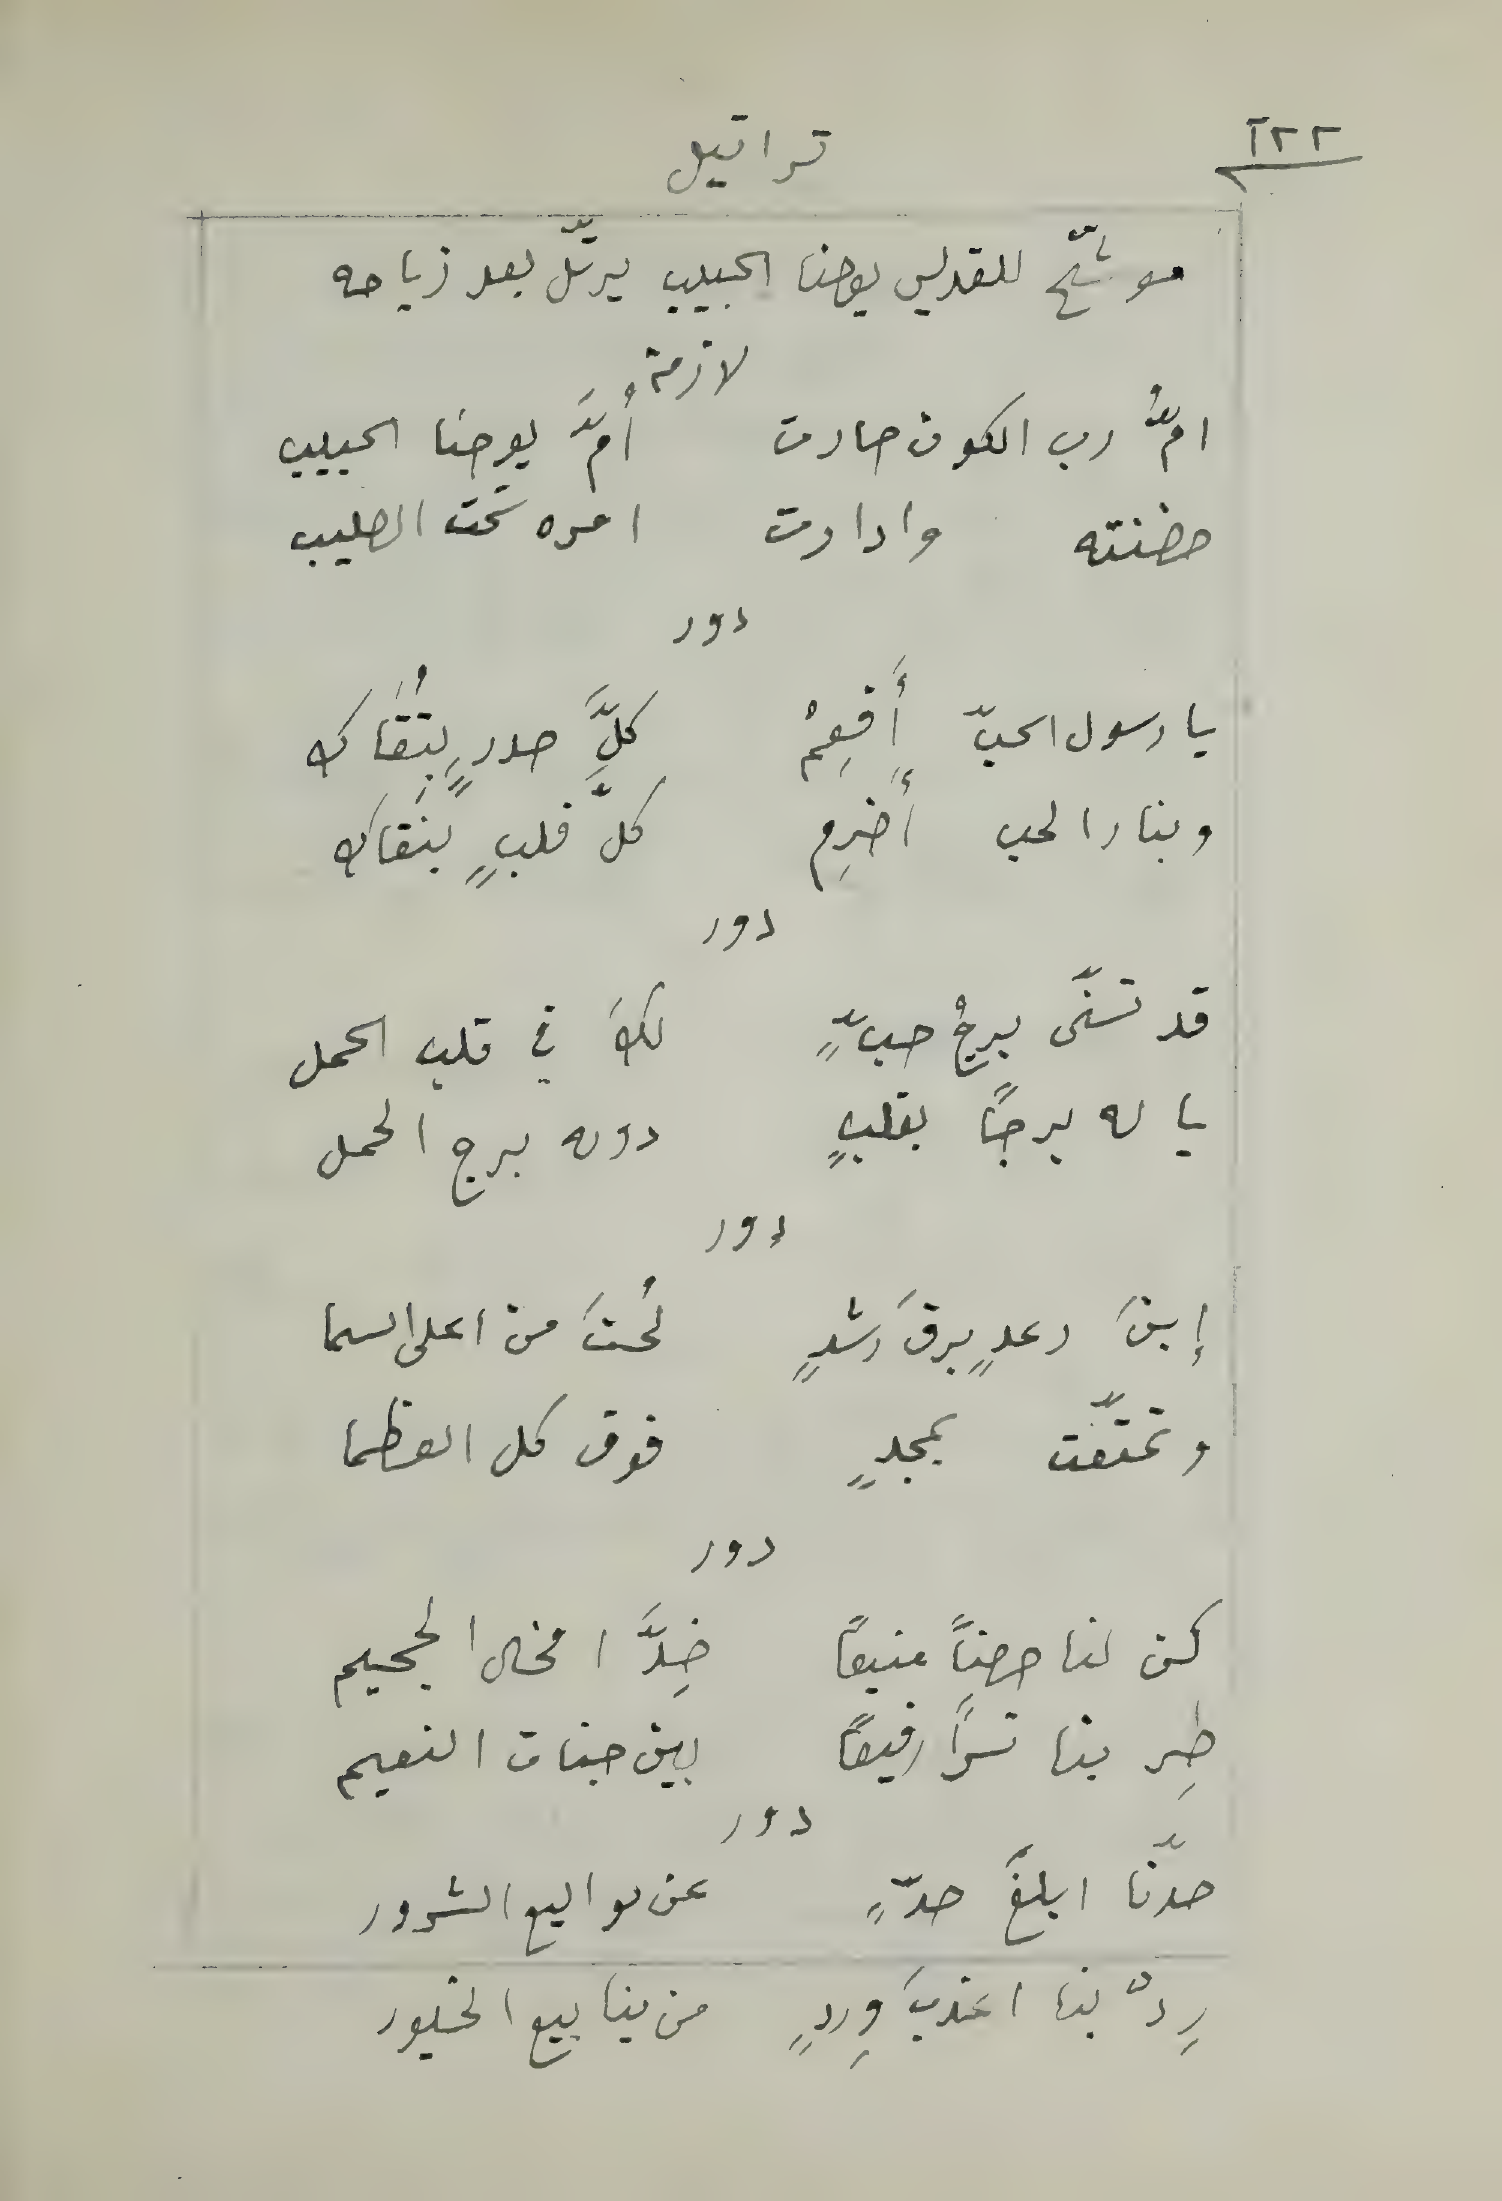 ٢٢آ
تراتيل
موشّح للقديس يوحنا الحبيب يرتّل بعد زياحه
لازمة
امُّ رب الكون صارت أُمَّ يوحنا الحبيب
حضنته وادارت امره تحت الصليب
دور
يا رسول الحبّ أَفعِمْ كلَّ صدرٍ بِتُقَاك
وبنار الحب أَضرِم كلَّ قلبٍ بنَقاك
دور
قد تسنَّى برجُ حبٍّ لكَ في قلب الحمل
يا له برجًا بقلبٍ دونه برج الحمل
دور
إبنَ رعدٍ برقَ رشدٍ لُحتَ من اعلى السما
وتمتّعت بمجدٍ فوق كل العظما
دور
كن لنا حصنًا منيعًا ضِدَّ الجحيم
طِر بنا نسرًا رفيعًا بين جنات النعيم
دور
حدّنا ابلغَ حدٍّ عن الشرور
رِدْ بنا اعذبَ وِردٍ من ينابيع الخيور